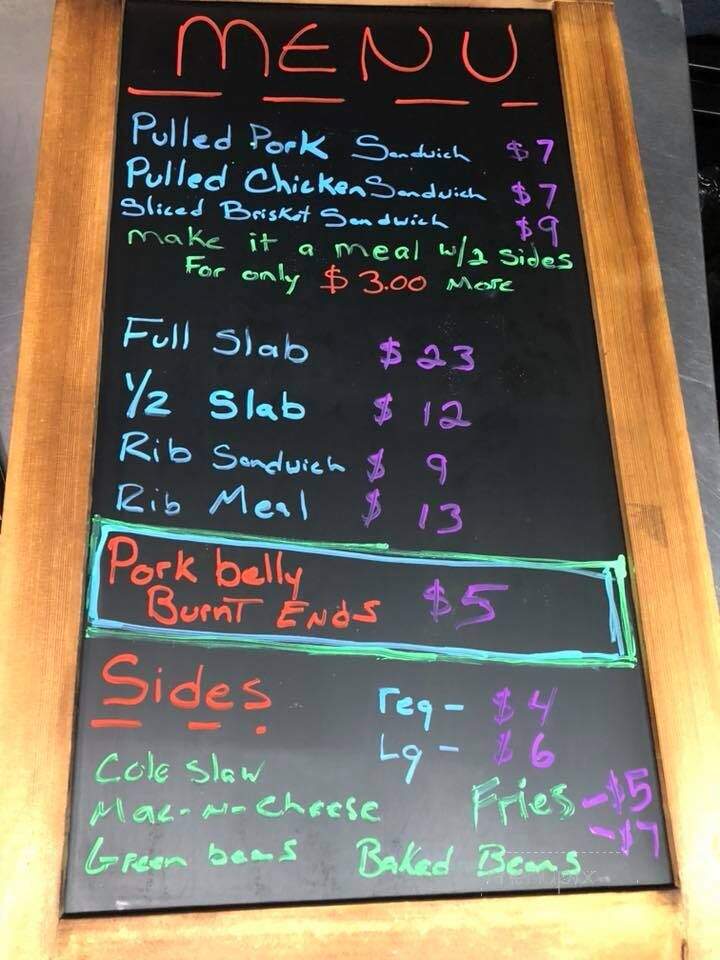 MENU
Pulled Pork Sandwich $7
Pulled Chicken Sandwich $7
Sliced Brisket Sandwich $9
make it a meal w/2 sides
For only $3.00 More
Full Slab $23
1/2 Slab $12
Rib Sandwich $9
Rib Meal $13
Pork belly
Burnt Ends $5
Sides reg - $4
Lg - $6
Cole Slaw
Mac-N-Cheese Fries - $5
- $7
Green beans Baked Beans